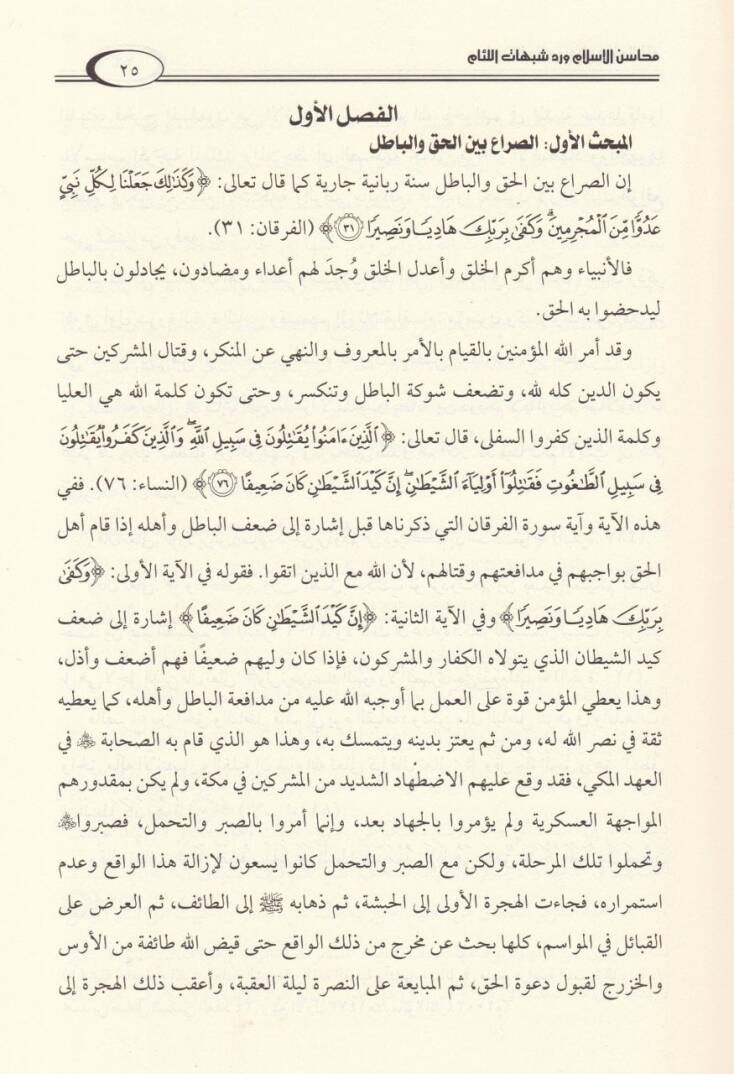 محاسن الإسلام ورد شبهات اللئام
٢٥
الفصل الأول
المبحث الأول: الصراع بين الحق والباطل
إن الصراع بين الحق والباطل سنة ربانية جارية كما قال تعالى: ﴿وَكَذَٰلِكَ جَعَلْنَا لِكُلِّ نَبِيٍّ
عَدُوًّا مِّنَ ٱلْمُجْرِمِينَ ۗ وَكَفَىٰ بِرَبِّكَ هَادِيًا وَنَصِيرًا ٣١﴾ (الفرقان: ٣١).
فالأنبياء وهم أكرم الخلق وأعدل الخلق وُجدَ لهم أعداء ومضادون، يجادلون بالباطل
ليدحضوا به الحق.
وقد أمر الله المؤمنين بالقيام بالأمر بالمعروف والنهي عن المنكر، وقتال المشركين حتى
يكون الدين كله لله، وتضعف شوكة الباطل وتنكسر، وحتى تكون كلمة الله هي العليا
وكلمة الذين كفروا السفلى، قال تعالى: ﴿ٱلَّذِينَ ءَامَنُوا۟ يُقَٰتِلُونَ فِى سَبِيلِ ٱللَّهِ ۖ وَٱلَّذِينَ كَفَرُوا۟ يُقَٰتِلُونَ
فِى سَبِيلِ ٱلطَّٰغُوتِ فَقَٰتِلُوٓا۟ أَوْلِيَآءَ ٱلشَّيْطَٰنِ ۖ إِنَّ كَيْدَ ٱلشَّيْطَٰنِ كَانَ ضَعِيفًا ٧٦﴾ (النساء: ٧٦). ففي
هذه الآية وآية سورة الفرقان التي ذكرناها قبل إشارة إلى ضعف الباطل وأهله إذا قام أهل
الحق بواجبهم في مدافعتهم وقتالهم، لأن الله مع الذين اتقوا. فقوله في الآية الأولى: ﴿وَكَفَىٰ
بِرَبِّكَ هَادِيًا وَنَصِيرًا﴾ وفي الآية الثانية: ﴿إِنَّ كَيْدَ ٱلشَّيْطَٰنِ كَانَ ضَعِيفًا﴾ إشارة إلى ضعف
كيد الشيطان الذي يتولاه الكفار والمشركون، فإذا كان وليهم ضعيفًا فهم أضعف وأذل،
وهذا يعطي المؤمن قوة على العمل بما أوجبه الله عليه من مدافعة الباطل وأهله، كما يعطيه
ثقة في نصر الله له، ومن ثم يعتز بدينه ويتمسك به، وهذا هو الذي قام به الصحابة ﵃ في
العهد المكي، فقد وقع عليهم الاضطهاد الشديد من المشركين في مكة، ولم يكن بمقدورهم
المواجهة العسكرية ولم يؤمروا بالجهاد بعد، وإنما أمروا بالصبر والتحمل، فصبروا ﵃
وتحملوا تلك المرحلة، ولكن مع الصبر والتحمل كانوا يسعون لإزالة هذا الواقع وعدم
استمراره، فجاءت الهجرة الأولى إلى الحبشة، ثم ذهابه ﷺ إلى الطائف، ثم العرض على
القبائل في المواسم، كلها بحث عن مخرج من ذلك الواقع حتى قيض الله طائفة من الأوس
والخزرج لقبول دعوة الحق، ثم المبايعة على النصرة ليلة العقبة، وأعقب ذلك الهجرة إلى